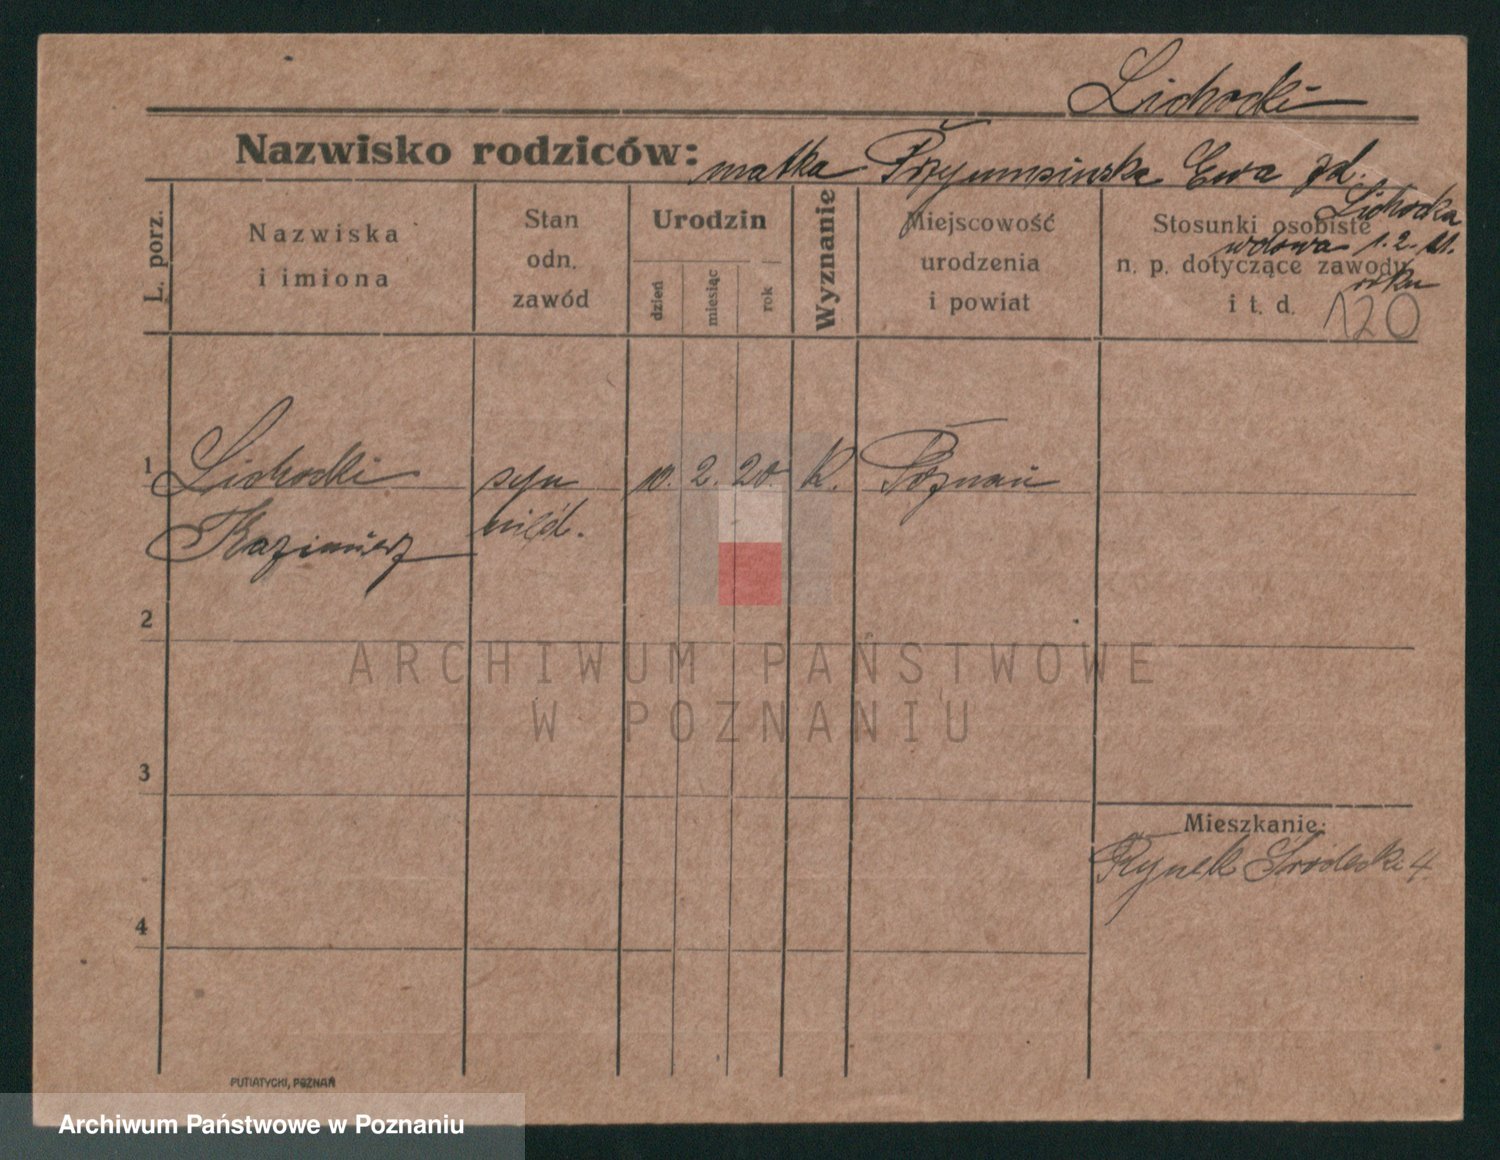 Lichocki
Nazwisko rodziców: matka Ewa zd.
Lichocka
wdowa 1.2.21.
roku
120
L. porz.
Nazwiska
i imiona
Stan
odn.
zawód
Urodzin
dzień
miesiąc
rok
Wyznanie
Miejscowość
urodzenia
i powiat
Stosunki osobiste
n. p. dotyczące zawodu
i t. d.
1 Lichocki syn 10. 2. 20. K. Poznań
Kazimierz
2
3
4
Mieszkanie:
Rynek Śródecki 4.
PUTIATYCKI, POZNAŃ
ARCHIWUM PAŃSTWOWE
W POZNANIU
Archiwum Państwowe w Poznaniu